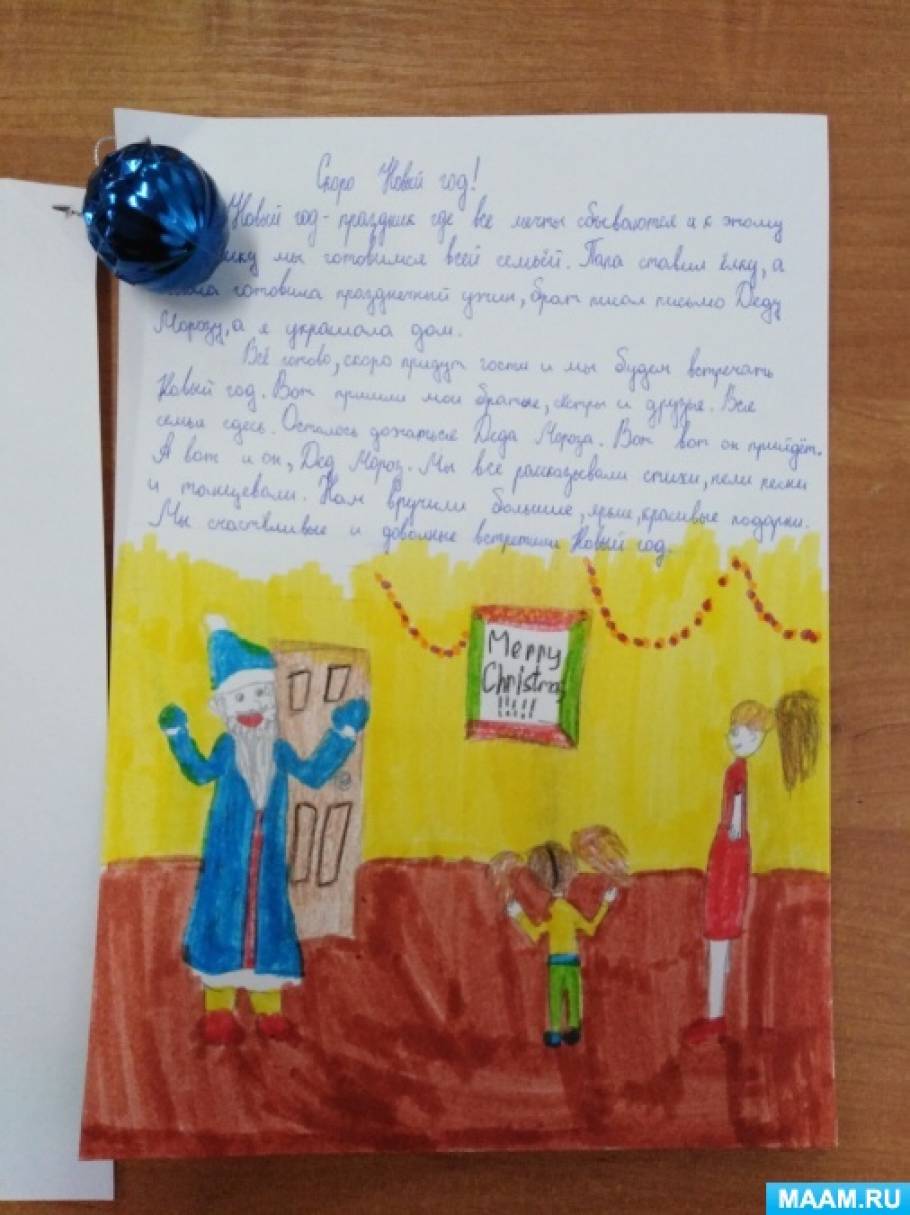 Скоро Новый год!
Новый год - праздник где все мечты сбываются и к этому
мы готовимся всей семьёй. Папа ставил ёлку, а
готовила праздничный ужин, брат писал письмо Деду
Морозу, а я украшала дом.
Всё готово, скоро придут гости и мы будем встречать
Новый год. Вот пришли мои братья, сёстры и друзья. Вся
семья здесь. Осталось дождаться Деда Мороза. Вот вот он прийдёт.
А вот и он, Дед Мороз. Мы все рассказывали стихи, пели песни
и танцевали. Нам вручили большие, красивые подарки.
Мы счастливые и довольные встретили Новый год.
Merry
Christmas
!!!!!
MAAM.RU